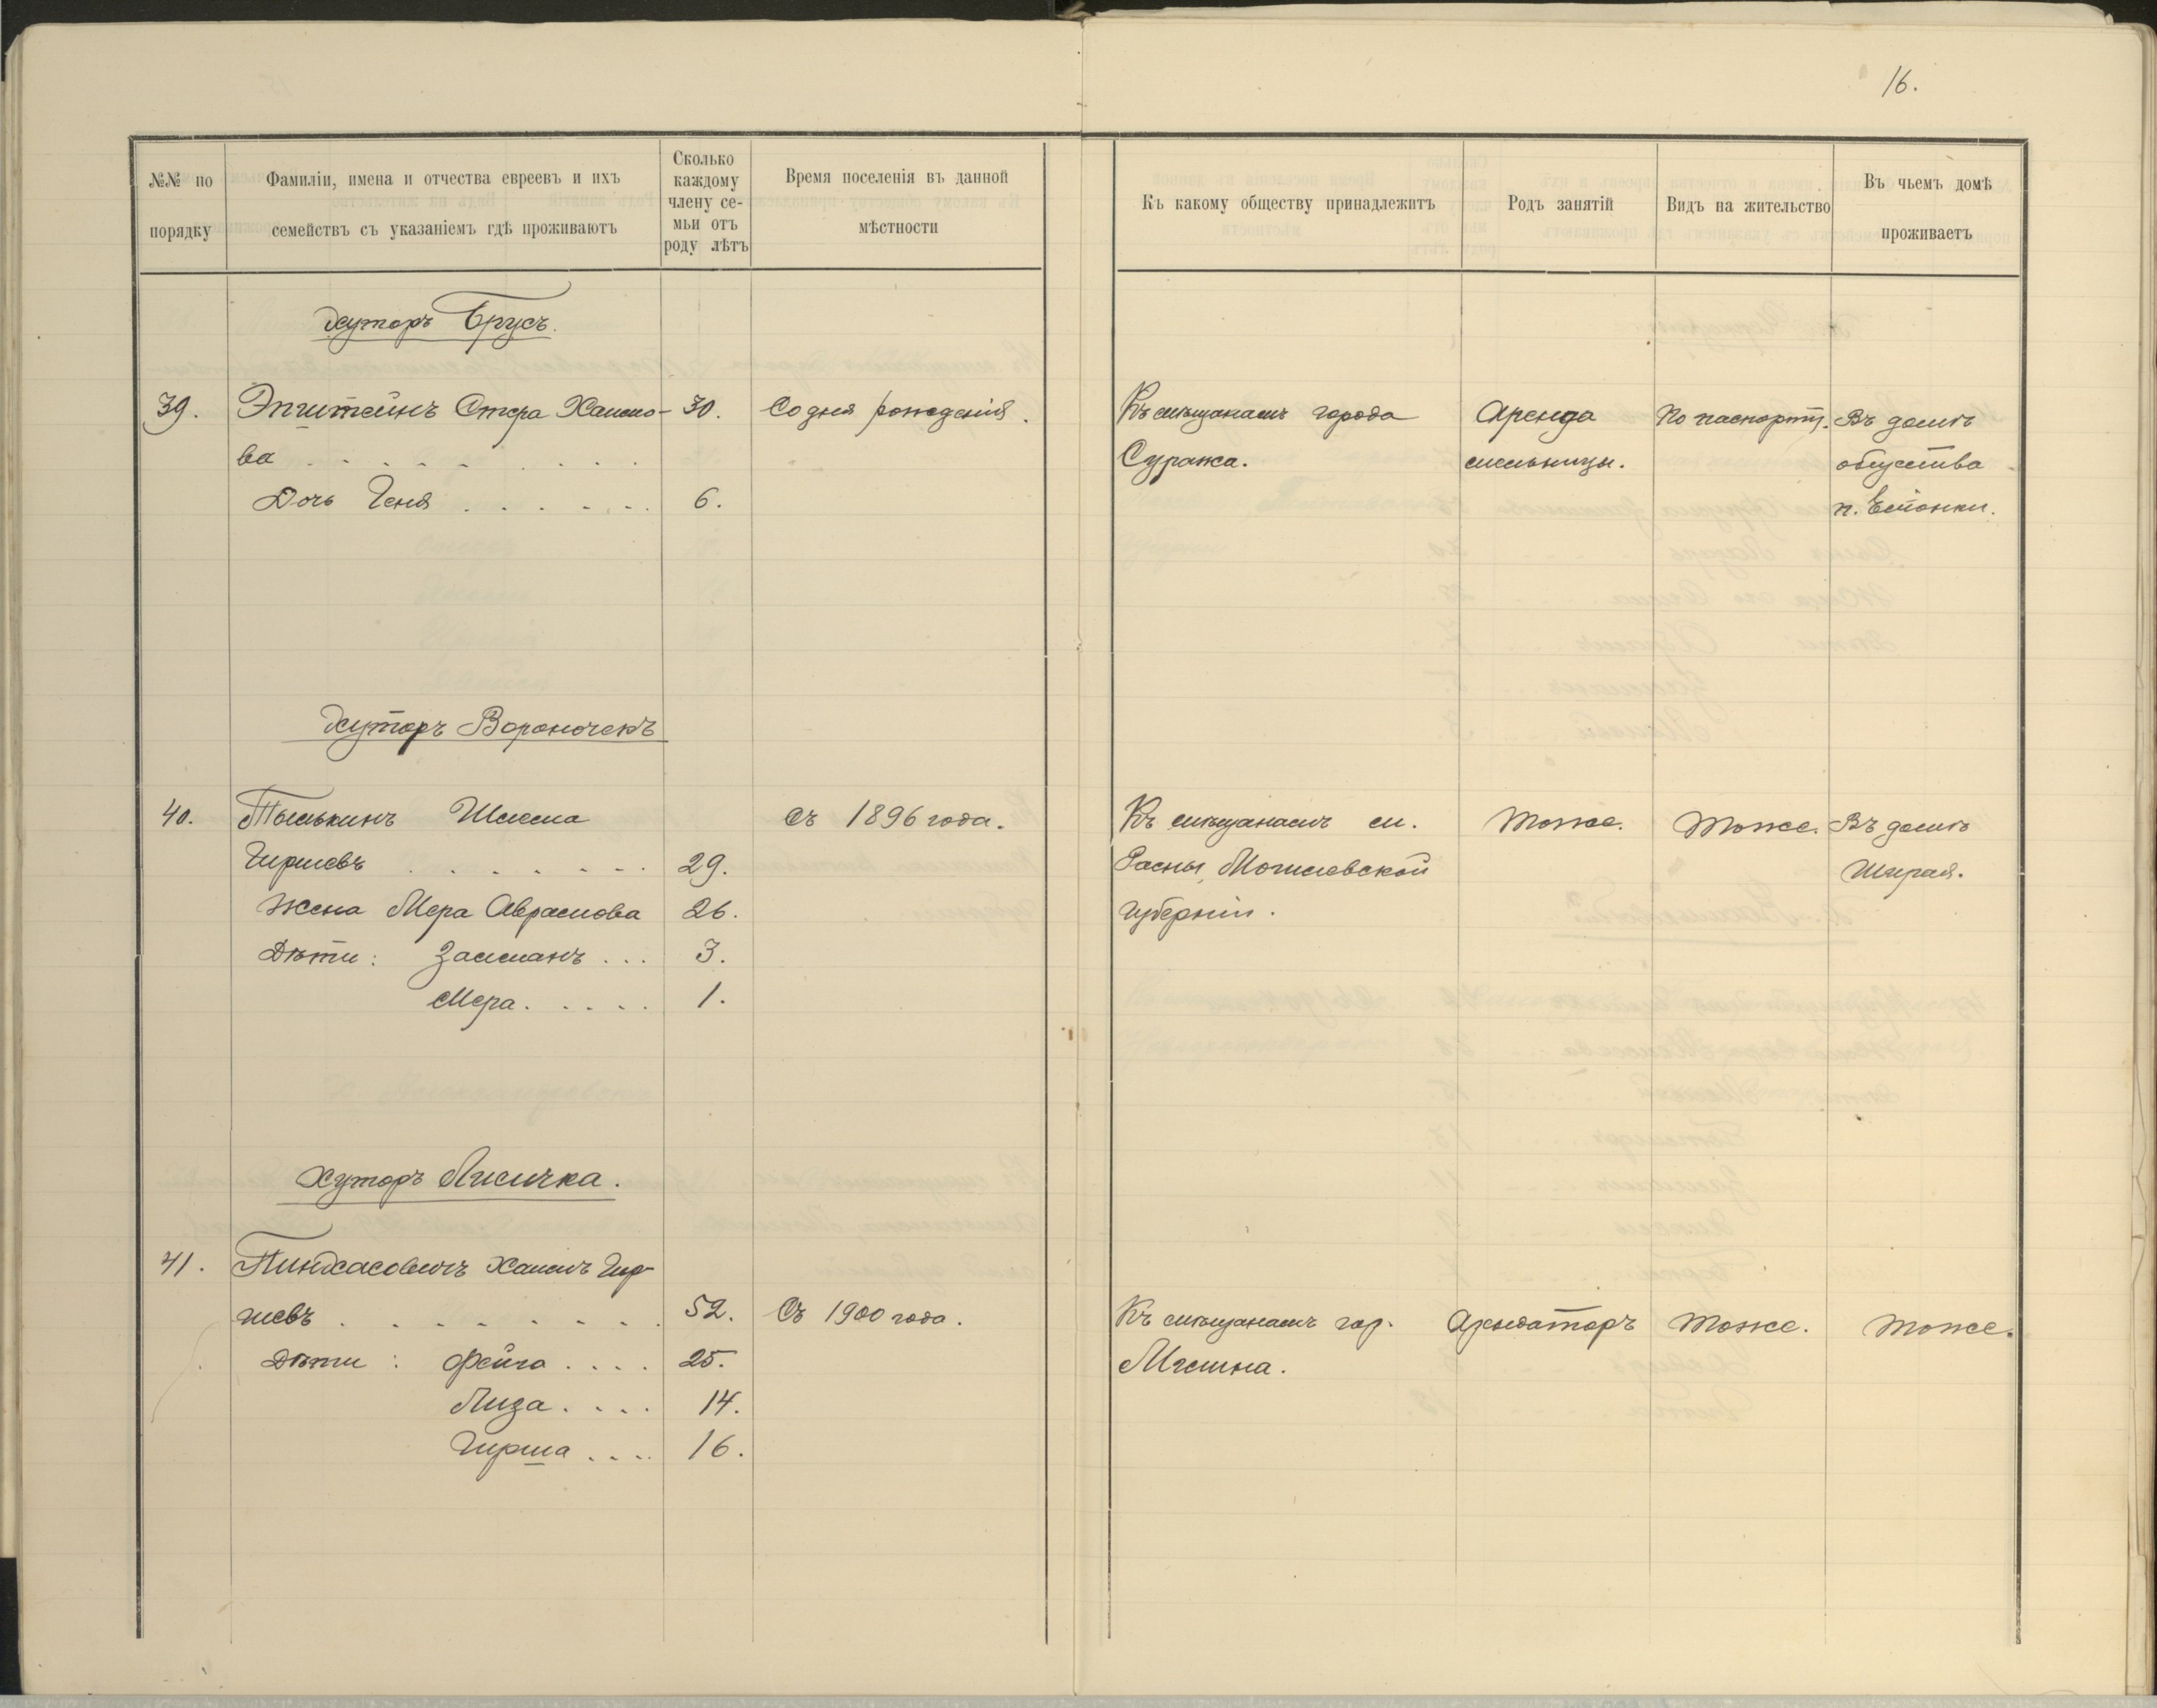 16.
№№ по порядку
Фамиліи, имена и отчества евреевъ и ихъ
семействъ съ указаніемъ гдѣ проживаютъ
Сколько
каждому
члену се-
мьи отъ
роду лѣтъ
Время поселенія въ данной
мѣстности
Къ какому обществу принадлежитъ
Родъ занятій
Видъ на жительство
Въ чьемъ домѣ
проживаетъ
Хуторъ Брусъ.
39. Эпштейнъ Стера Хаимо- 30. Со дня рожденія. Къ мѣщанамъ города Аренда По паспорту. Въ домѣ
ва . . . . . . . . Суража. мельницы. общества
Дочь Геня . . . . . . 6. п.
Хуторъ Вороночекъ
40. Шлема Съ 1896 года. Къ мѣщанамъ м. Тоже. Тоже. Въ домѣ
Гиршевъ . . . . . . 29. Расны, Могилевской Ширая.
Жена Мера Аврамова 26. Губерніи.
Дѣти: Залманъ . . . 3.
Мера. . . . . 1.
Хуторъ Лисичка.
41. Пинхасовичъ Хаимъ Гир-
шевъ . . . . . . . . 52. Съ 1900 года. Къ мѣщанамъ гор. Арендаторъ Тоже. Тоже.
Дѣти: Фейга . . . . 25. Мглина.
Лиза . . . . 14.
Гирша . . . . 16.